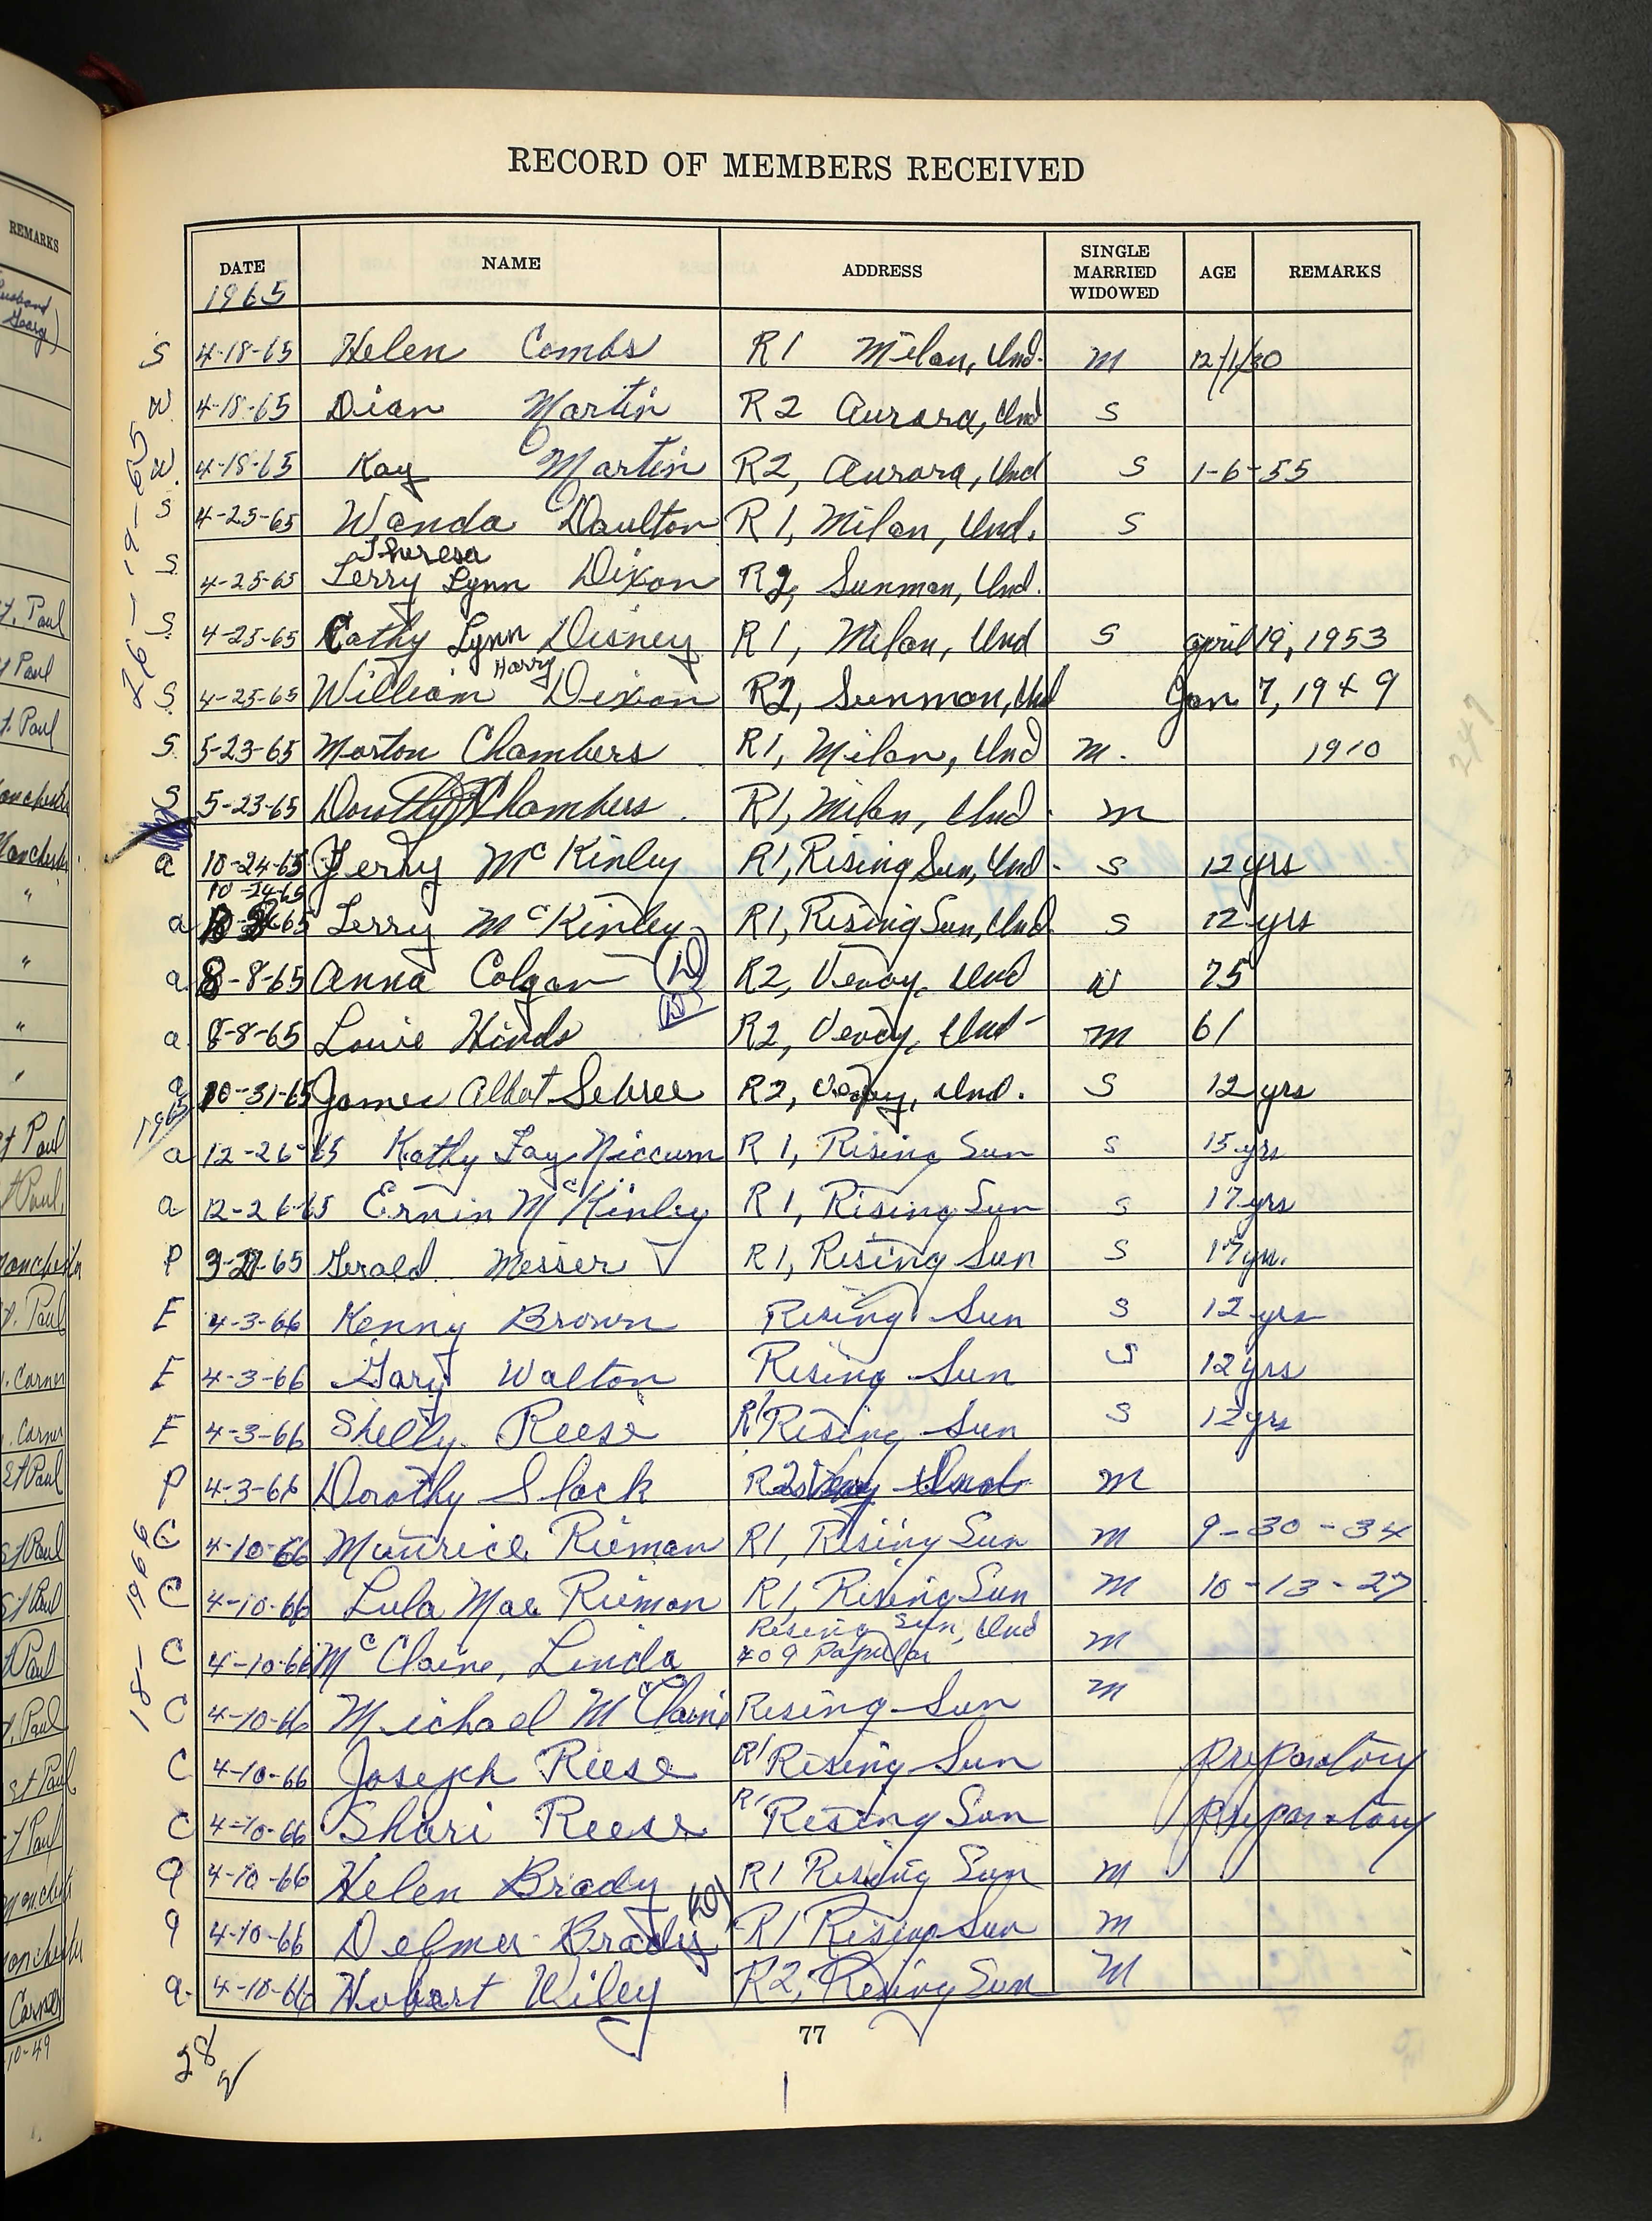 RECORD OF MEMBERS RECEIVED
DATE NAME ADDRESS SINGLE MARRIED WIDOWED AGE REMARKS
1965
S 4-18-65 Helen Combs R1 Milan, Ind. m 12/1/30
W 4-18-65 Dian Martin R2 Aurora, Ind S
W. 4-18-65 Kay Martin R2, Aurora, Ind S 1-6-55
S 4-25-65 Wanda Daulton R1, Milan, Ind. S
Theresa
S 4-25-65 Terry Lynn Dixon R2, Sunman, Ind.
S. 4-25-65 Cathy Lynn Disney R1, Milan, Ind S april 19, 1953
Harry
S. 4-25-65 William Dixon R2, Sunman, Ind Jan 7, 1949
S. 5-23-65 Morton Chambers R1, Milan, Ind m. 1910
S 5-23-65 Dorothy Chambers. R1, Milan, Ind. m
a 10-24-65 Jerry McKinley R1, Rising Sun, Ind. S 12 yrs
10-24-65
a Terry McKinley R1, Rising Sun, Ind. S 12 yrs
a 8-8-65 Anna Colgan (D) R2, Vevay, Ind W 75
a 8-8-65 Louie Hinds R2, Vevay, Ind- m 61
a 10-31-65 James Albert Sebree R2, Vevay, Ind. S 12 yrs
1965
a 12-26-65 Kathy Fay Niccum R 1, Rising Sun S 15 yrs
a 12-26-65 Ernin McKinley R 1, Rising Sun S 17 yrs
P 3-21-65 Gerald Messer R 1, Rising Sun S 17 yrs.
E 4-3-66 Kenny Brown Rising Sun S 12 yrs
E 4-3-66 Gary Walton Rising Sun S 12 yrs
E 4-3-66 Shelly Reese R1 Rising Sun S 12 yrs
P 4-3-66 Dorothy Slack R2 m
C 4-10-66 Maurice Rieman R1, Rising Sun m 9-30-34
C 4-10-66 Lula Mae Rieman R1, Rising Sun m 10-13-27
Rising Sun, Ind
C 4-10-66 McClaine, Linda 409 m
C 4-10-66 Michael McClaine Rising Sun m
C 4-10-66 Joseph Reese R1 Rising Sun preparatory
C 4-10-66 Shari Reese R1 Rising Sun preparatory
a 4-10-66 Helen Brady R1 Rising Sun m
a 4-10-66 Delmer Brady (D) R1 Rising Sun m
a. 4-10-66 Hobert Wiley R2, Rising Sun M
26-19-65
18-1966
77
28
247
REMARKS
Husband
Georg)
St. Paul
St Paul
St. Paul
Manchester
Manchester
"
"
"
St Paul
St Paul,
Manchester
St. Paul
. Corner
. Corner
St Paul
St Paul
St Paul
St Paul
St. Paul
St Paul
St Paul
Manchester
Manchester
Corner
-10-49